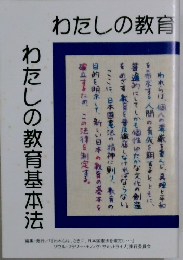 わたしの教育
わたしの教育基本法
われらは、個人の尊厳を重んじ、真理と平和
を希求する人間の育成を期するとともに、
普遍的にしてしかも個性ゆたかな文化の創造
をめざす教育を普及徹底しなければならない。
ここに、日本国憲法の精神に則り、教育の
目的を明示して、新しい日本の教育の基本を
確立するため、この法律を制定する。